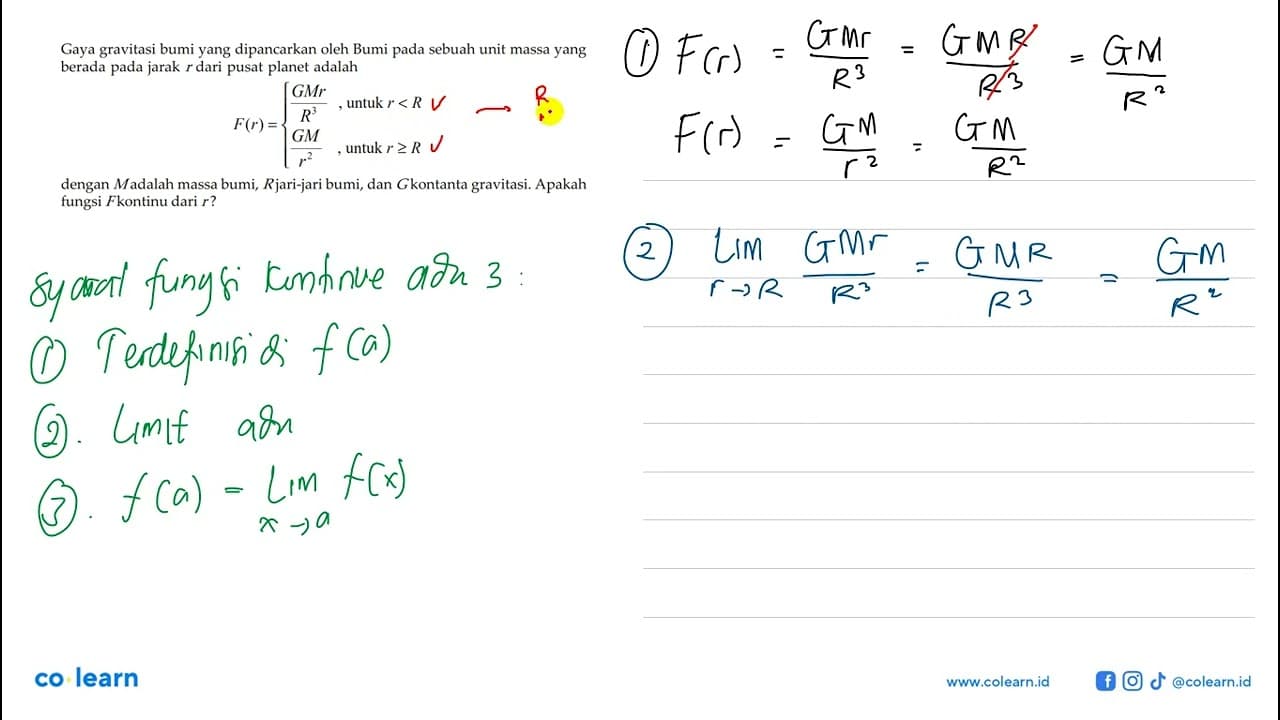 Gaya gravitasi bumi yang dipancarkan oleh Bumi pada sebuah unit massa yang
berada pada jarak r dari pusat planet adalah
F(r) = { GMr/R³ , untuk r < R ✓ → R
GM/r² , untuk r ≥ R ✓
dengan Madalah massa bumi, Rjari-jari bumi, dan Gkontanta gravitasi. Apakah
fungsi Fkontinu dari r?
Syarat fungsi kontinue ada 3 :
① Terdefinisi di f(a)
②. Limit ada
③. f(a) = Lim x→a f(x)
① F(r) = GMr/R³ = GMR/R³ = GM/R²
F(r) = GM/r² = GM/R²
② Lim r→R GMr/R³ = GMR/R³ = GM/R²
co·learn
www.colearn.id
@colearn.id